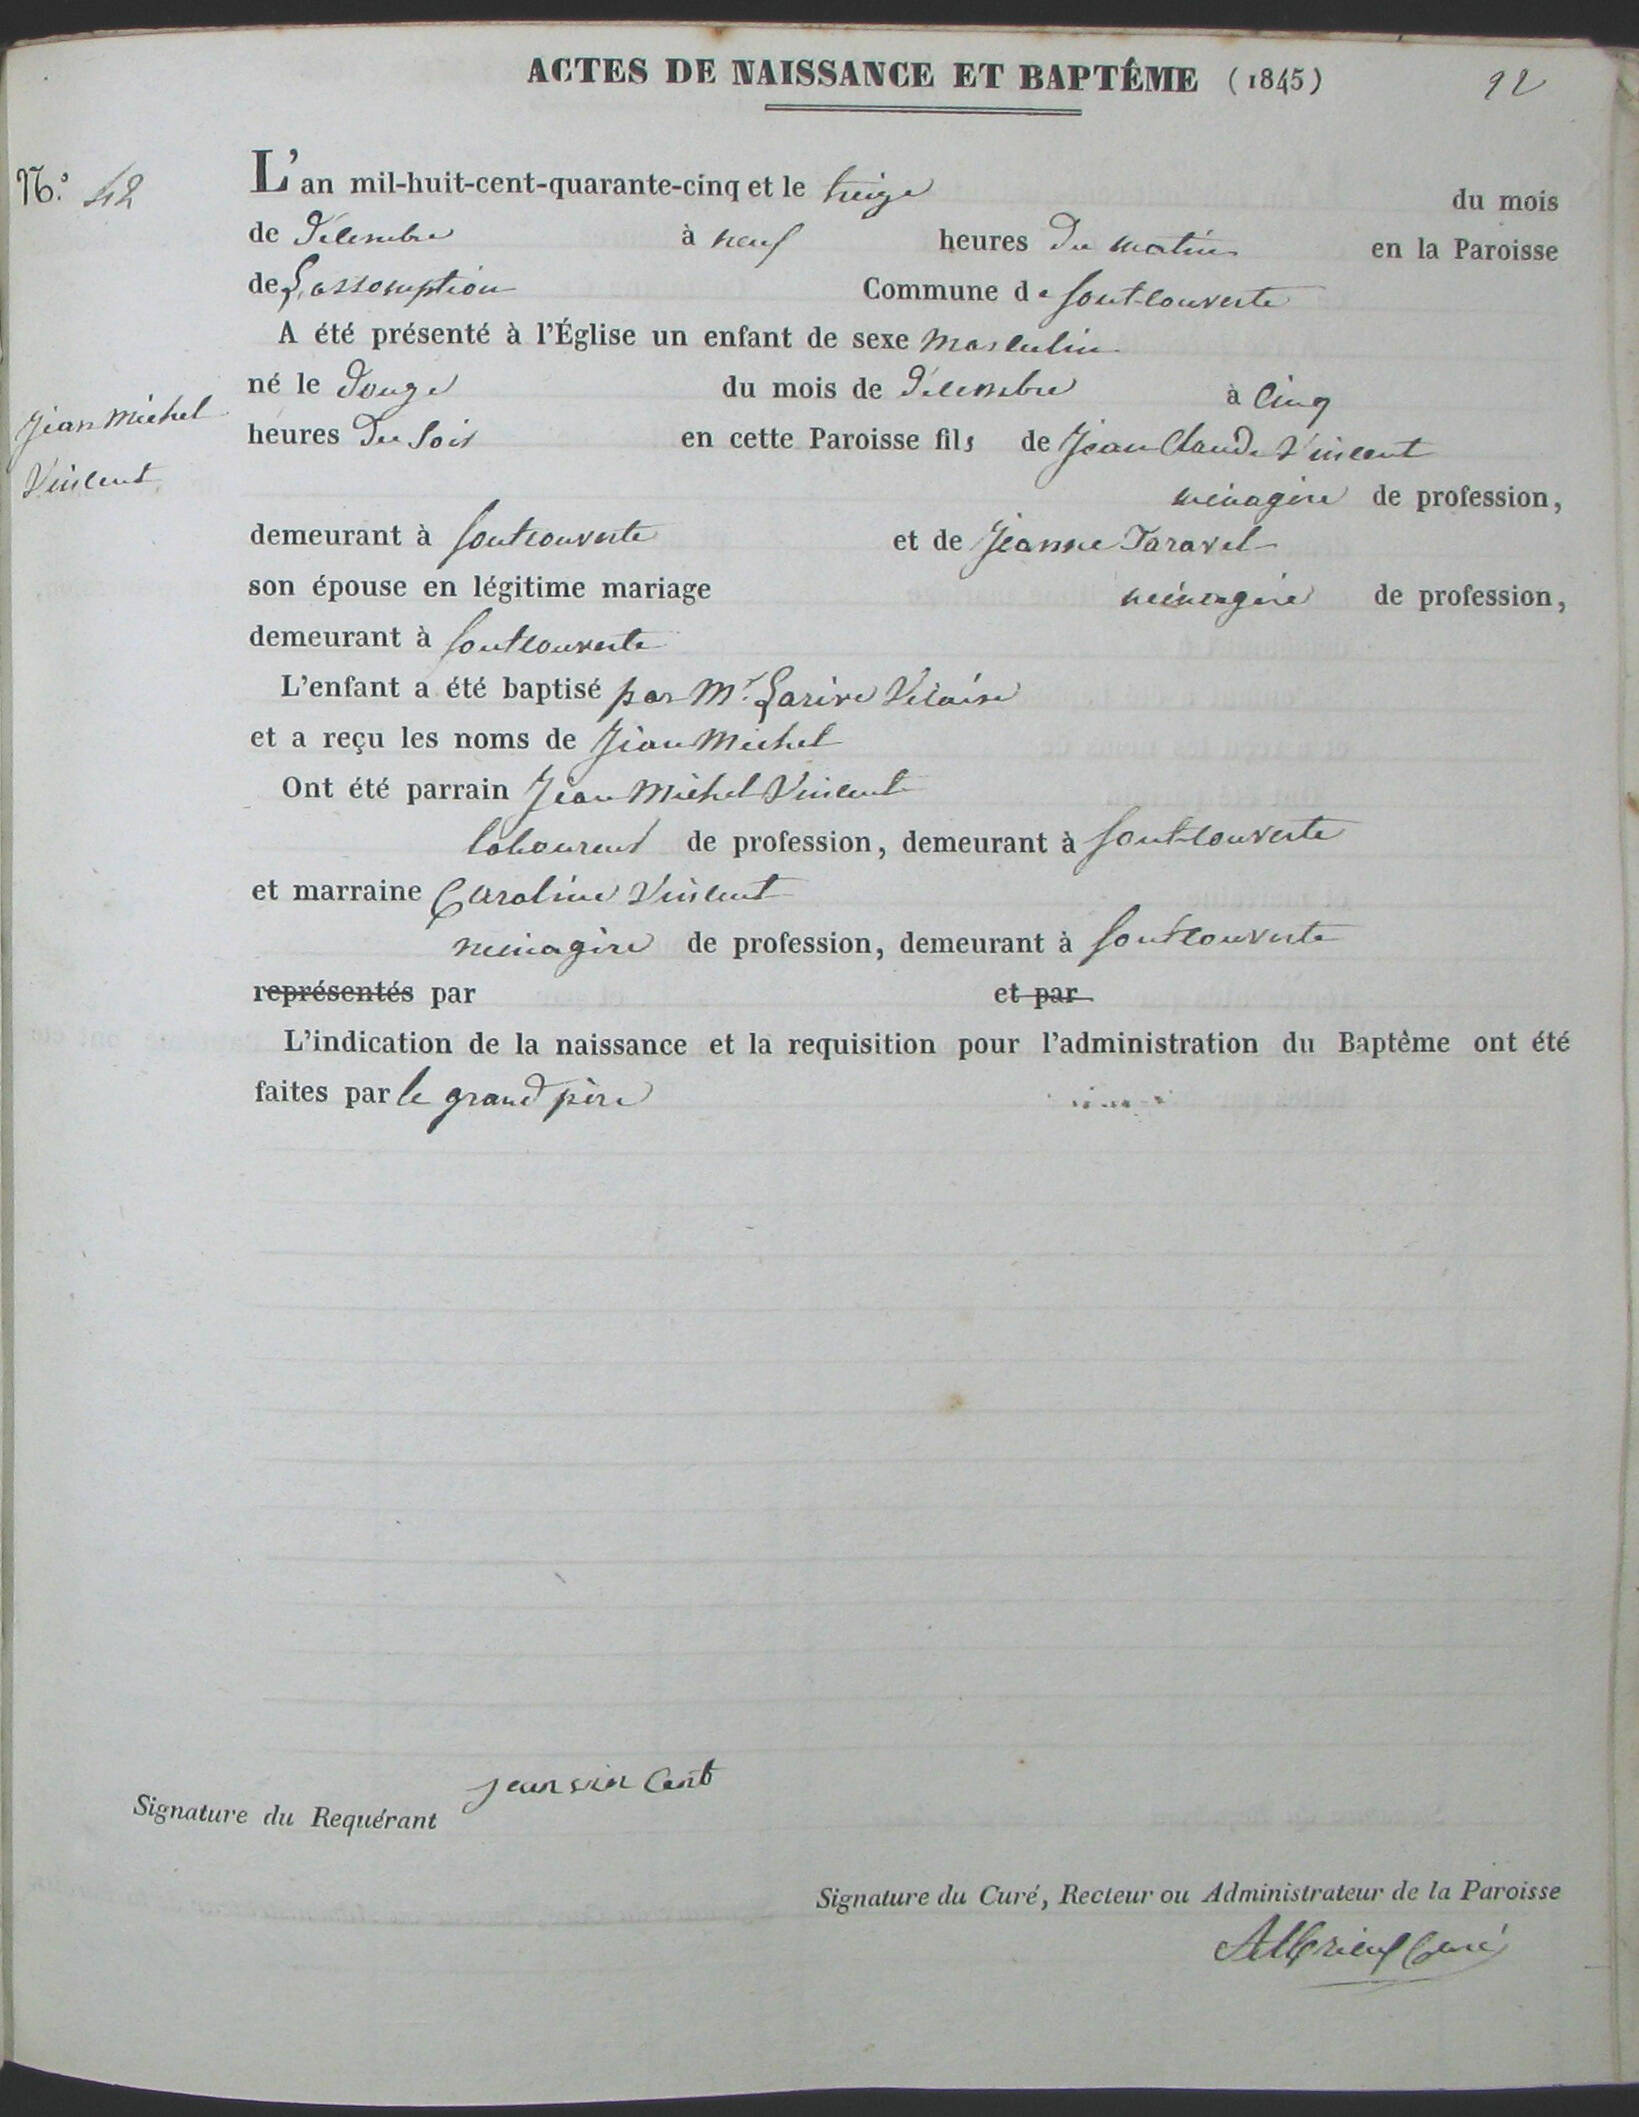 ACTES DE NAISSANCE ET BAPTÊME (1845) 92
N.º 42
L'an mil-huit-cent-quarante-cinq et le treize du mois
de Décembre à neuf heures du matin en la Paroisse
de L'assomption Commune de fontcouverte
A été présenté à l'Église un enfant de sexe masculin
né le douze du mois de Décembre à Cinq
Jean Michel
Vincent
heures du Soir en cette Paroisse fils de Jean Claude Vincent
ménagère de profession,
demeurant à fontcouverte et de Jeanne Taravel
son épouse en légitime mariage ménagère de profession,
demeurant à fontcouverte
L'enfant a été baptisé par Mr. Larive Vicaire
et a reçu les noms de Jean Michel
Ont été parrain Jean Michel Vincent
laboureur de profession, demeurant à fontcouverte
et marraine Caroline Vincent
ménagère de profession, demeurant à fontcouverte
représentés par et par
L'indication de la naissance et la requisition pour l'administration du Baptême ont été
faites par le grand père
jean vin Cent
Signature du Requérant
Signature du Curé, Recteur ou Administrateur de la Paroisse
Curé